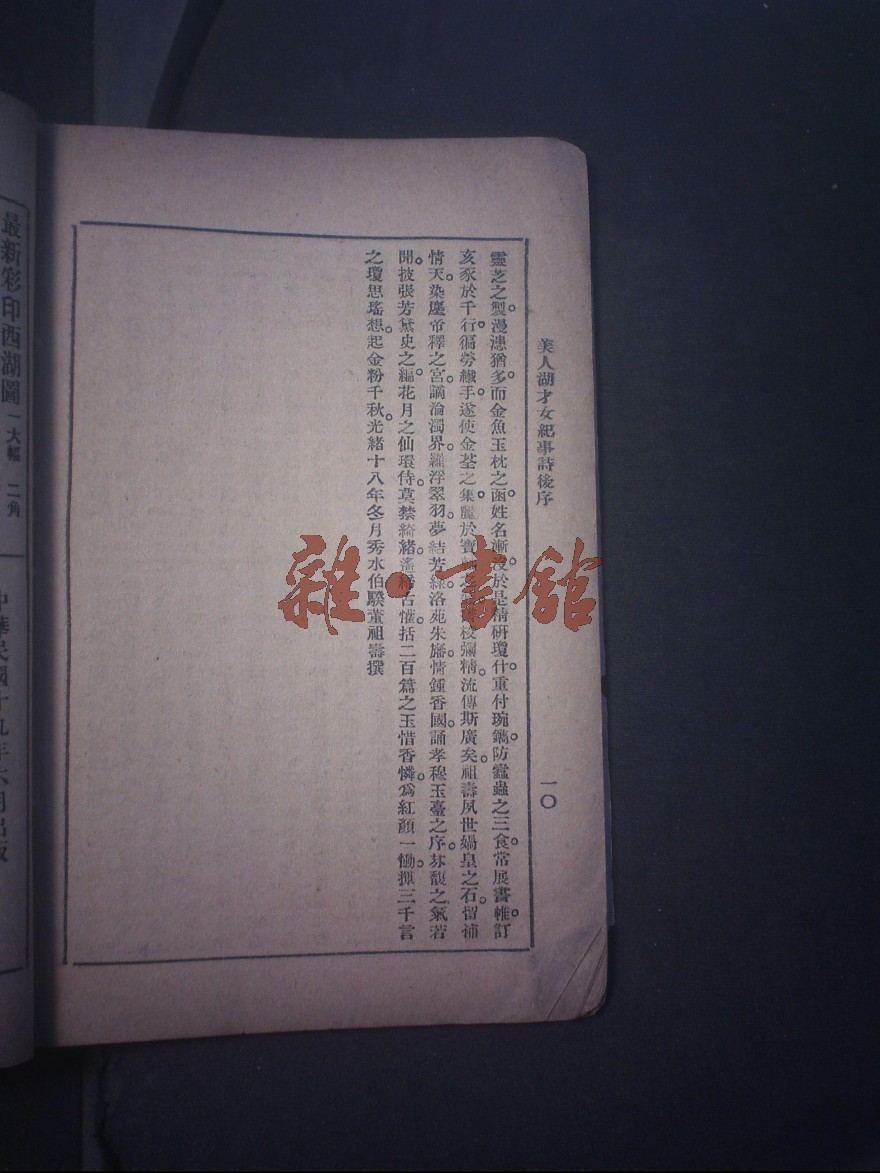 美人湖才女紀事詩後序
一〇
靈芝之製。漫漶猶多。而金魚玉枕之函。姓名漸沒。於是精研瓊什。重付琬鐫。防蠹蟲之三食。常展書帷。訂
亥豕於千行。猵勞纖手。遂使金荃之集。麗於寶校彌精。流傳斯廣矣。祖壽夙世媧皇之石。留補
情天。染塵帝釋之宮。謫淪濁界。羅浮翠羽。夢結芳緣。洛苑朱旛。情鍾香國。誦孝穆玉臺之序。芬馥之氣若
聞。披張芳黛史之編。花月之仙環侍。莫禁綺緒。遙古懽。括二百篇之玉惜香憐。爲紅顏一慟。揮三千言
之瓊思瑤想。起金粉千秋。光緒十八年冬月秀水伯騤董祖壽撰
最新彩印西湖圖 一大幅 二角
中華民國十九年六月出版
雜·書館